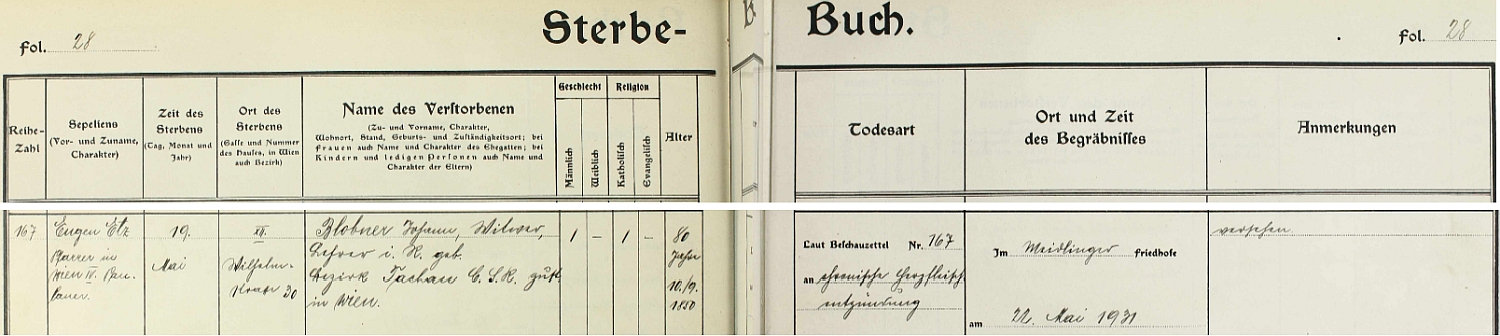 Fol. 28
Sterbe-
Buch.
Fol. 28
Reihe-
Zahl
Sepeliens
(Vor- und Zuname,
Charakter)
Zeit des
Sterbens
(Tag, Monat und
Jahr)
Ort des
Sterbens
(Gasse und Nummer
des Hauses, in Wien
auch Bezirk)
Name des Verstorbenen
(Zu- und Vorname, Charakter,
Wohnort, Stand, Geburts- und Zuständigkeitsort; bei
Frauen auch Name und Charakter des Ehegatten; bei
Kindern und ledigen Personen auch Name und
Charakter der Eltern)
Geschlecht
Männlich
Weiblich
Religion
Katholisch
Evangelisch
Alter
Todesart
Ort und Zeit
des Begräbnisses
Anmerkungen
167
Eugen Etz
Pfarrer in
Wien IV. Pau-
laner.
19.
Mai
XII.
Wilhelm-
strasse 30
Blobner Johann, Witwer,
Lehrer i. R. geb.
Bezirk Tachau C.S.R. zust.
in Wien.
1
–
1
–
80
Jahre
10./9.
1850
Laut Beschauzettel Nr. 767
an chronische Herzfleisch
entzündung
Im Meidlinger Friedhofe
am 22. Mai 1931
versehen